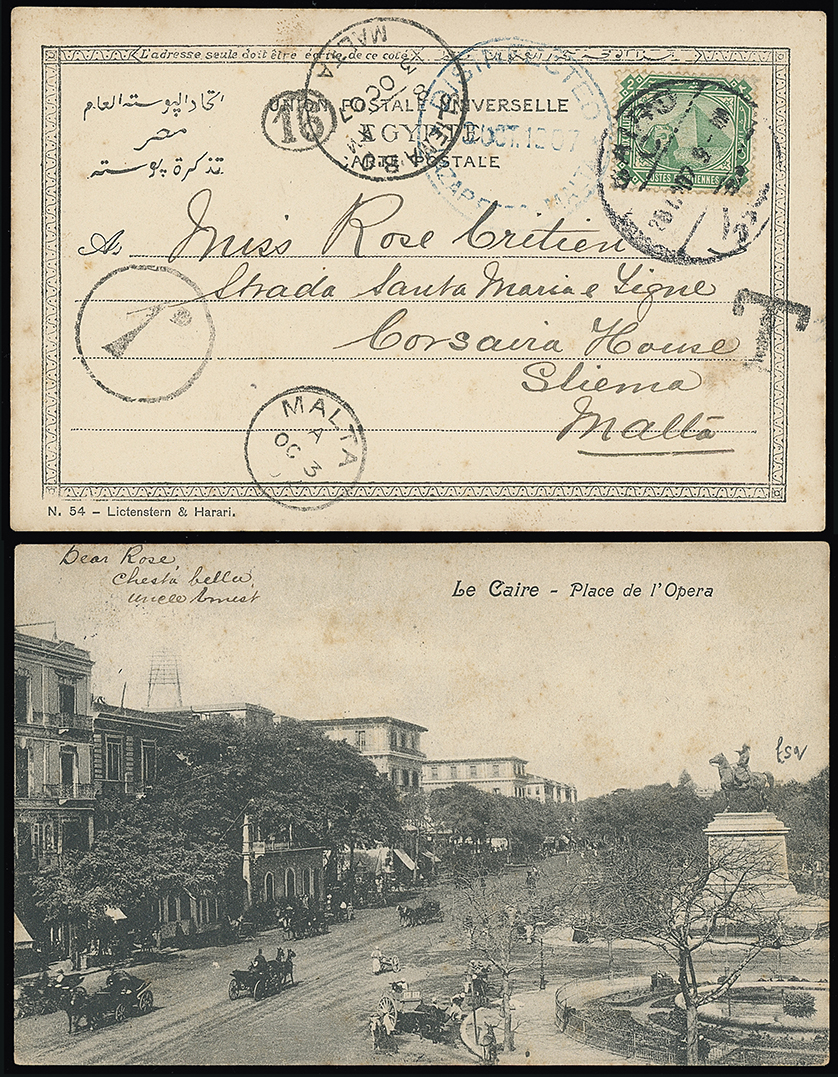 L'adresse seule doit être écrite de ce coté
اتحاد البوسته العام
مصر
تذكرة بوسته
UNION POSTALE UNIVERSELLE
EGYPTE
CARTE POSTALE
16
SLIEMA
MALTA
8 AM
3 OC 07
DISINFECTED
3 OCT. 1907
LAZARETTO MALTA
POSTES EGYPTIENNES
CAIRO
T
A Miss Rose Critien
Strada Santa Maria e Tigne
Corsaira House
Sliema
Malta
1
MALTA
A
OC 3
N. 54 – Lictenstern & Harari.
Dear Rose,
chesta bella,
uncle Ernest
Le Caire - Place de l'Opera